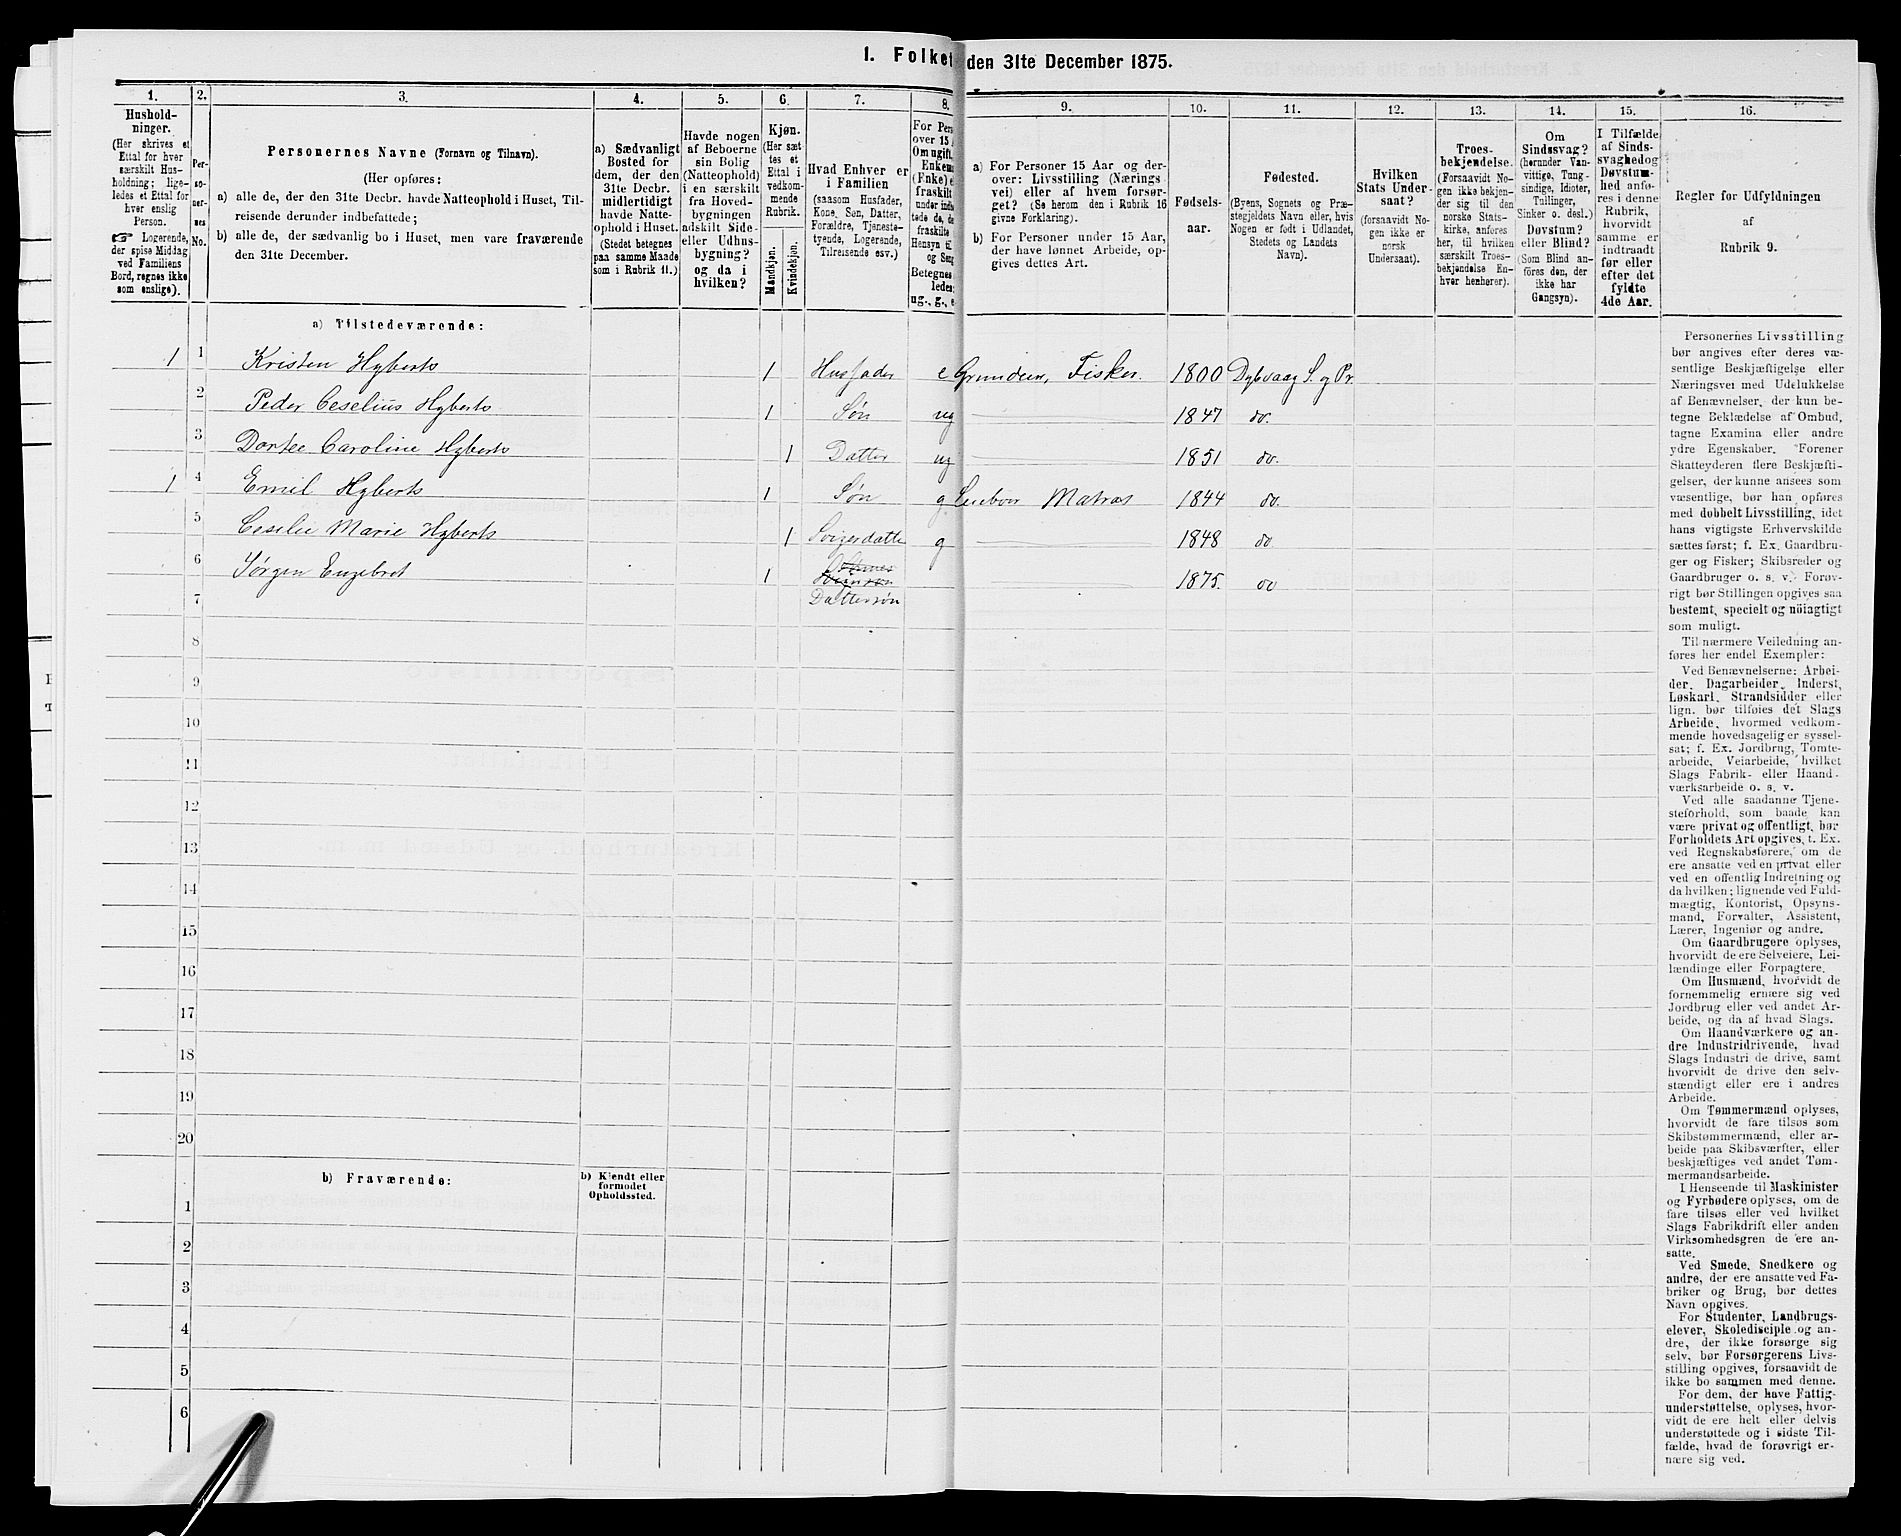 1. Folket den 31te December 1875.
1. 2. 3. 4. 5. 6. 7. 8. 9. 10. 11. 12. 13. 14. 15. 16.
Hushold-
ninger.
(Her skrives et
Ettal for hver
særskilt Hus-
holdning; lige-
ledes et Ettal for
hver enslig
Person.
☞ Logerende,
der spise Middag
ved Familiens
Bord, regnes ikke
som enslige).
Per-
so-
ner-
nes
No.
Personernes Navne (Fornavn og Tilnavn).
(Her opføres:
a) alle de, der den 31te Decbr. havde Natteophold i Huset, Til-
reisende derunder indbefattede;
b) alle de, der sædvanlig bo i Huset, men vare fraværende
den 31te December.
a) Sædvanligt
Bosted for
dem, der den
31te Decbr.
midlertidigt
havde Natte-
ophold i Huset.
(Stedet betegnes
paa samme Maade
som i Rubrik 11.)
Havde nogen
af Beboerne
sin Bolig
(Natteophold)
i en særskilt
fra Hoved-
bygningen
adskilt Side-
eller Udhus-
bygning?
og da i
hvilken?
Kjøn.
(Her sæt-
tes et
Ettal i
vedkom-
mende
Rubrik.
Mandkjøn.
Kvindekjøn.
Hvad Enhver er
i Familien
(saasom Husfader,
Kone, Søn, Datter,
Forældre, Tjeneste-
tyende, Logerende,
Tilreisende osv.)
For Pers
over 15 A
Om ugift,
Enkem
(Enke) e
fraskilt
under indb
tede de, de
fraskilte
Hensyn til
og Seng
Betegnes
ledes:
ug., g., e
a) For Personer 15 Aar og der-
over: Livsstilling (Nærings-
vei) eller af hvem forsør-
get? (Se herom den i Rubrik 16
givne Forklaring).
b) For Personer under 15 Aar,
der have lønnet Arbeide, op-
gives dettes Art.
Fødsels-
aar.
Fødested.
(Byens, Sognets og Præ-
stegjeldets Navn eller, hvis
Nogen er født i Udlandet,
Stedets og Landets
Navn).
Hvilken
Stats Under-
saat?
(forsaavidt No-
gen ikke er
norsk
Undersaat).
Troes-
bekjendelse.
(Forsaavidt No-
gen ikke bekjen-
der sig til den
norske Stats-
kirke, anføres
her, til hvilken
særskilt Troes-
bekjendelse En-
hver henhører).
Om
Sindssvag?
(herunder Van-
vittige, Tung-
sindige, Idioter,
Tullinger,
Sinker o. desl.)
Døvstum?
eller Blind?
(Som Blind an-
føres den, der
ikke har
Gangsyn).
I Tilfælde
af Sinds-
svaghed og
Døvstum-
hed anfø-
res i denne
Rubrik,
hvorvidt
samme er
indtraadt
før eller
efter det
fyldte
4de Aar.
Regler for Udfyldningen
af
Rubrik 9.
a) Tilstedeværende:
1 1 Kristen Hyberts 1 Husfader e Grundeier, Fisker. 1800 Dybvaag S. og Pr
2 Peder Ceselius Hyberts 1 Søn ug 1847 do.
3 Dortee Caroline Hyberts 1 Datter ug 1851 do.
1 4 Emil Hyberts 1 Søn g Leieboer Matros 1844 do.
5 Ceselie Marie Hyberts 1 Svigerdatter g 1848 do
6 Jørgen Engebret 1 1875. do
7 Dattersøn
8
9
10
11
12
13
14
15
16
17
18
19
20
b) Fraværende:
b) Kjendt eller
formodet
Opholdssted.
1
2
3
4
5
6
Personernes Livsstilling
bør angives efter deres væ-
sentlige Beskjæftigelse eller
Næringsvei med Udelukkelse
af Benævnelser, der kun be-
tegne Beklædelse af Ombud,
tagne Examina eller andre
ydre Egenskaber. Forener
Skatteyderen flere Beskjæfti-
gelser, der kunne ansees som
væsentlige, bør han opføres
med dobbelt Livsstilling, idet
hans vigtigste Erhvervskilde
sættes først; f. Ex. Gaardbru-
ger og Fisker; Skibsreder og
Gaardbruger o. s. v. Forøv-
rigt bør Stillingen opgives saa
bestemt, specielt og nöiagtigt
som muligt.
Til nærmere Veiledning an-
føres her endel Exempler:
Ved Benævnelserne: Arbei-
der, Dagarbeider, Inderst,
Løskarl, Strandsidder eller
lign. bør tilføies det Slags
Arbeide, hvormed vedkom-
mende hovedsagelig er syssel-
sat; f. Ex. Jordbrug, Tomte-
arbeide, Veiarbeide, hvilket
Slags Fabrik- eller Haand-
værksarbeide o. s. v.
Ved alle saadanne Tjene-
steforhold, som baade kan
være privat og offentligt, bør
Forholdets Art opgives, t. Ex.
ved Regnskabsførere, om de
ere ansatte ved en privat eller
ved en offentlig Indretning og
da hvilken; lignende ved Fuld-
mægtig, Kontorist, Opsyns-
mand, Forvalter, Assistent,
Lærer, Ingeniør og andre.
Om Gaardbrugere oplyses,
hvorvidt de ere Selveiere, Lei-
lændinge eller Forpagtere.
Om Husmænd, hvorvidt de
fornemmelig ernære sig ved
Jordbrug eller ved andet Ar-
beide, og da af hvad Slags.
Om Haandværkere og an-
dre Industridrivende, hvad
Slags Industri de drive, samt
hvorvidt de drive den selv-
stændigt eller ere i andres
Arbeide.
Om Tømmermænd oplyses,
hvorvidt de fare tilsøs som
Skibstømmermænd, eller ar-
beide paa Skibsværfter, eller
beskjæftiges ved andet Tøm-
mermandsarbeide.
I Henseende til Maskinister
og Fyrbødere oplyses, om de
fare tilsøs eller ved hvilket
Slags Fabrikdrift eller anden
Virksomhedsgren de ere an-
satte.
Ved Smede, Snedkere og
andre, der ere ansatte ved Fa-
briker og Brug, bør dettes
Navn opgives.
For Studenter, Landbrugs-
elever, Skoledisciple og an-
dre, der ikke forsørge sig
selv, bør Forsørgerens Livs-
stilling opgives, forsaavidt de
ikke bo sammen med denne.
For dem, der have Fattig-
understøttelse, oplyses, hvor-
vidt de ere helt eller delvis
understøttede og i sidste Til-
fælde, hvad de forøvrigt er-
nære sig ved.